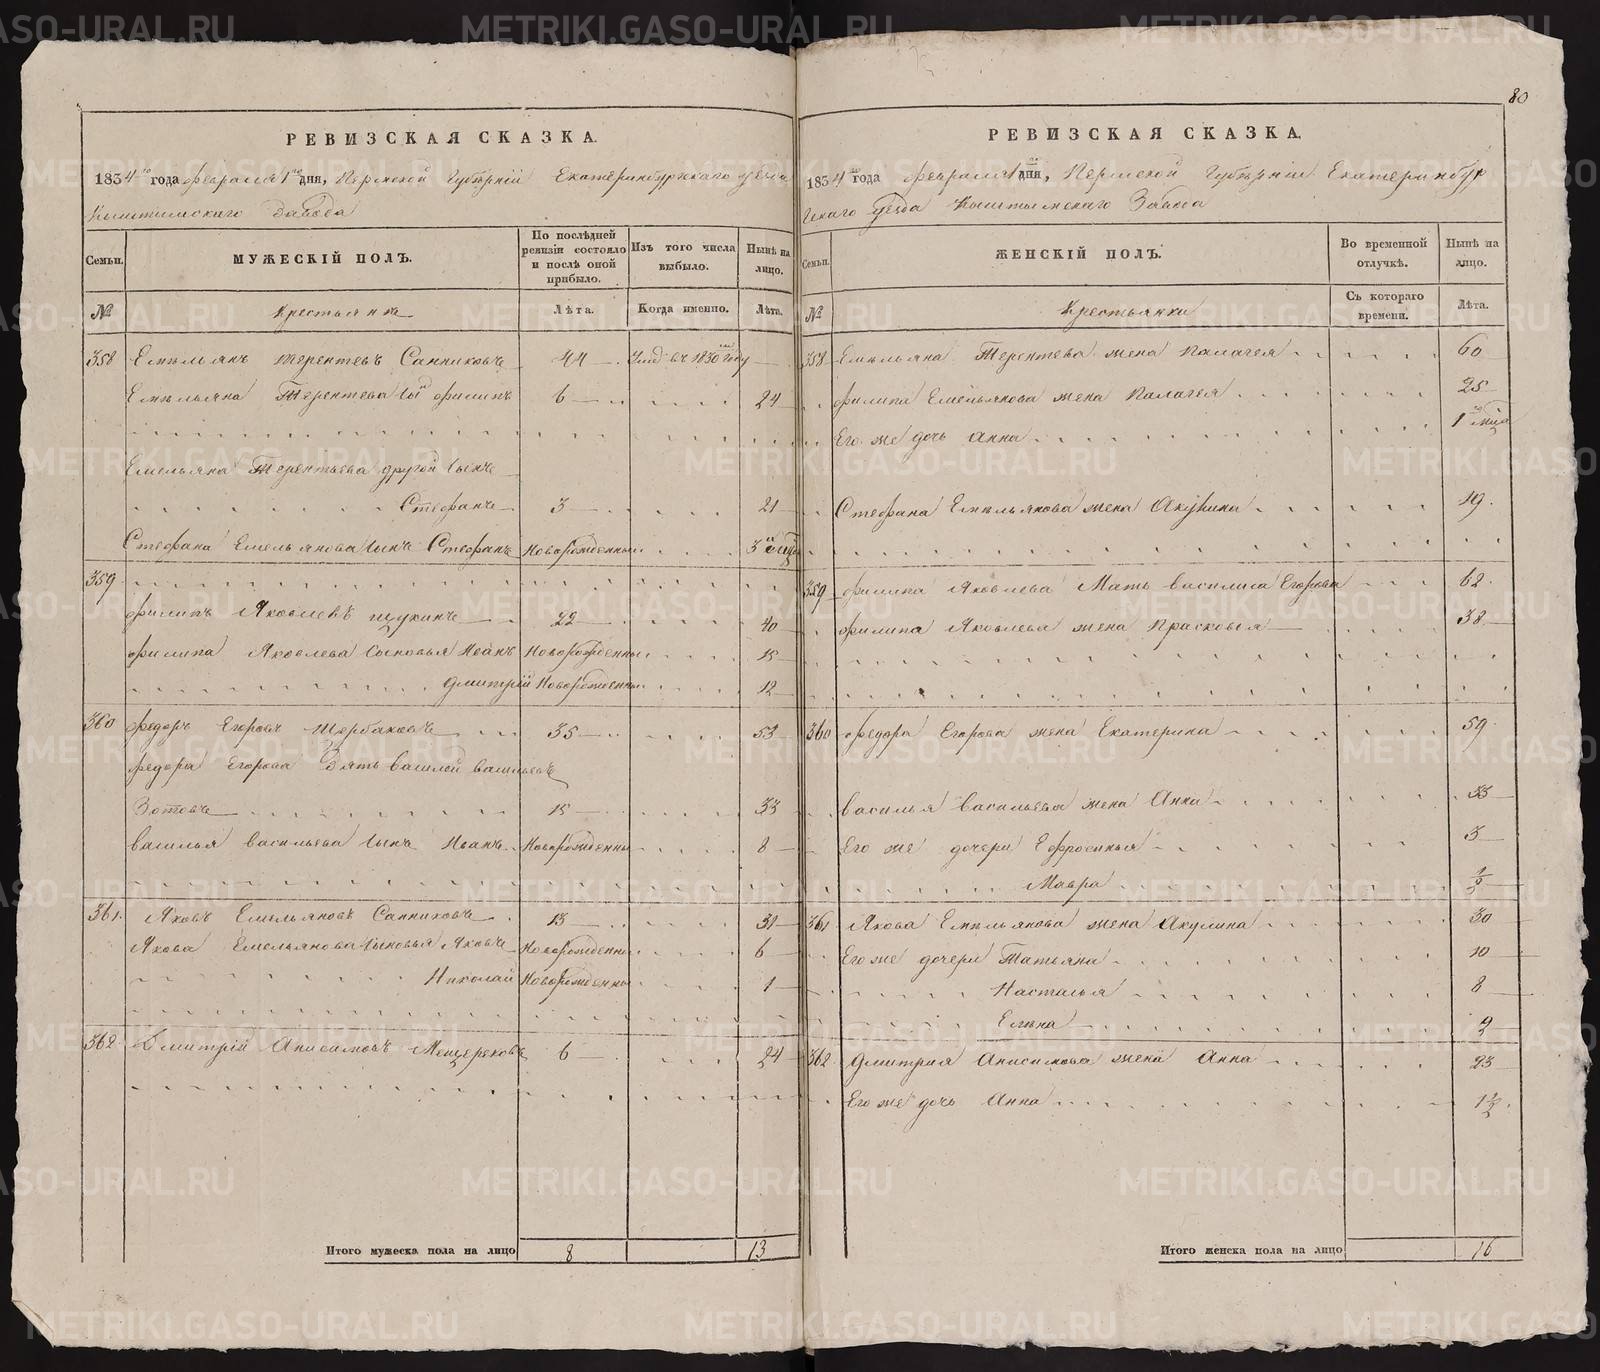 80
РЕВИЗСКАЯ СКАЗКА.
1834го года февраля 1го дня, Пермской Губерніи Екатеринбургскаго уезда
Кыштымскаго Завода
Семьи. МУЖЕСКІЙ ПОЛЪ. По послѣдней ревизіи состояло и послѣ оной прибыло. Изъ того числа выбыло. Нынѣ на лицо.
№ Крестьяне Лѣта. Когда именно. Лѣта.
358 Емельянъ Терентевъ Санниковъ 44 Умр въ 1830 году
Емельяна Терентева сынъ Филипъ 6 24
Емельяна Терентьева другой сынъ
Стефанъ 3 21
Стефана Емельянова сынъ Стефанъ Новорожденный 3
359
Филипъ Яковлевъ Щукинъ 22 40
Филипа Яковлева сыновья Иванъ Новорожденный 15
Дмитрій Новорожденный 12
360 Федоръ Егоровъ Щербаковъ 35 53
Федора Егорова Зять Василей Васильевъ
Зотовъ 15 33
Василья Васильева сынъ Иванъ Новорожденный 8
361. Яковъ Емельяновъ Санниковъ 13 31
Якова Емельянова сыновья Яковъ Новорожденный 6
Николай Новорожденный 1
362 Дмитрій Анисимовъ Мещеряковъ 6 24
Итого мужеска пола на лицо 8 13
РЕВИЗСКАЯ СКАЗКА.
1834го года февраля 1го дня, Пермской Губерніи Екатеринбур
гскаго уезда Кыштымскаго Завода
Семьи. ЖЕНСКІЙ ПОЛЪ. Во временной отлучкѣ. Нынѣ на лицо.
№ Крестьянки Съ котораго времени. Лѣта.
358 Емельяна Терентева жена Палагея 60
Филипа Емельянова жена Палагея 25
Его же дочь Анна 1
Стефана Емельянова жена Акулина 19
359 Филипа Яковлева Мать Василиса Егорова 62
Филипа Яковлева жена Прасковья 38
360 Федора Егорова жена Екатерина 59
Василья Васильева жена Анна 33
Его же дочери Ефросинья 3
Мавра
361 Якова Емельянова жена Акулина 30
Его же дочери Татьяна 10
Насталья 8
Елена
362 Дмитрия Анисимова жена Анна 23
Его же дочь Анна 1½
Итого женска пола на лицо 16
METRIKI.GASO-URAL.RU